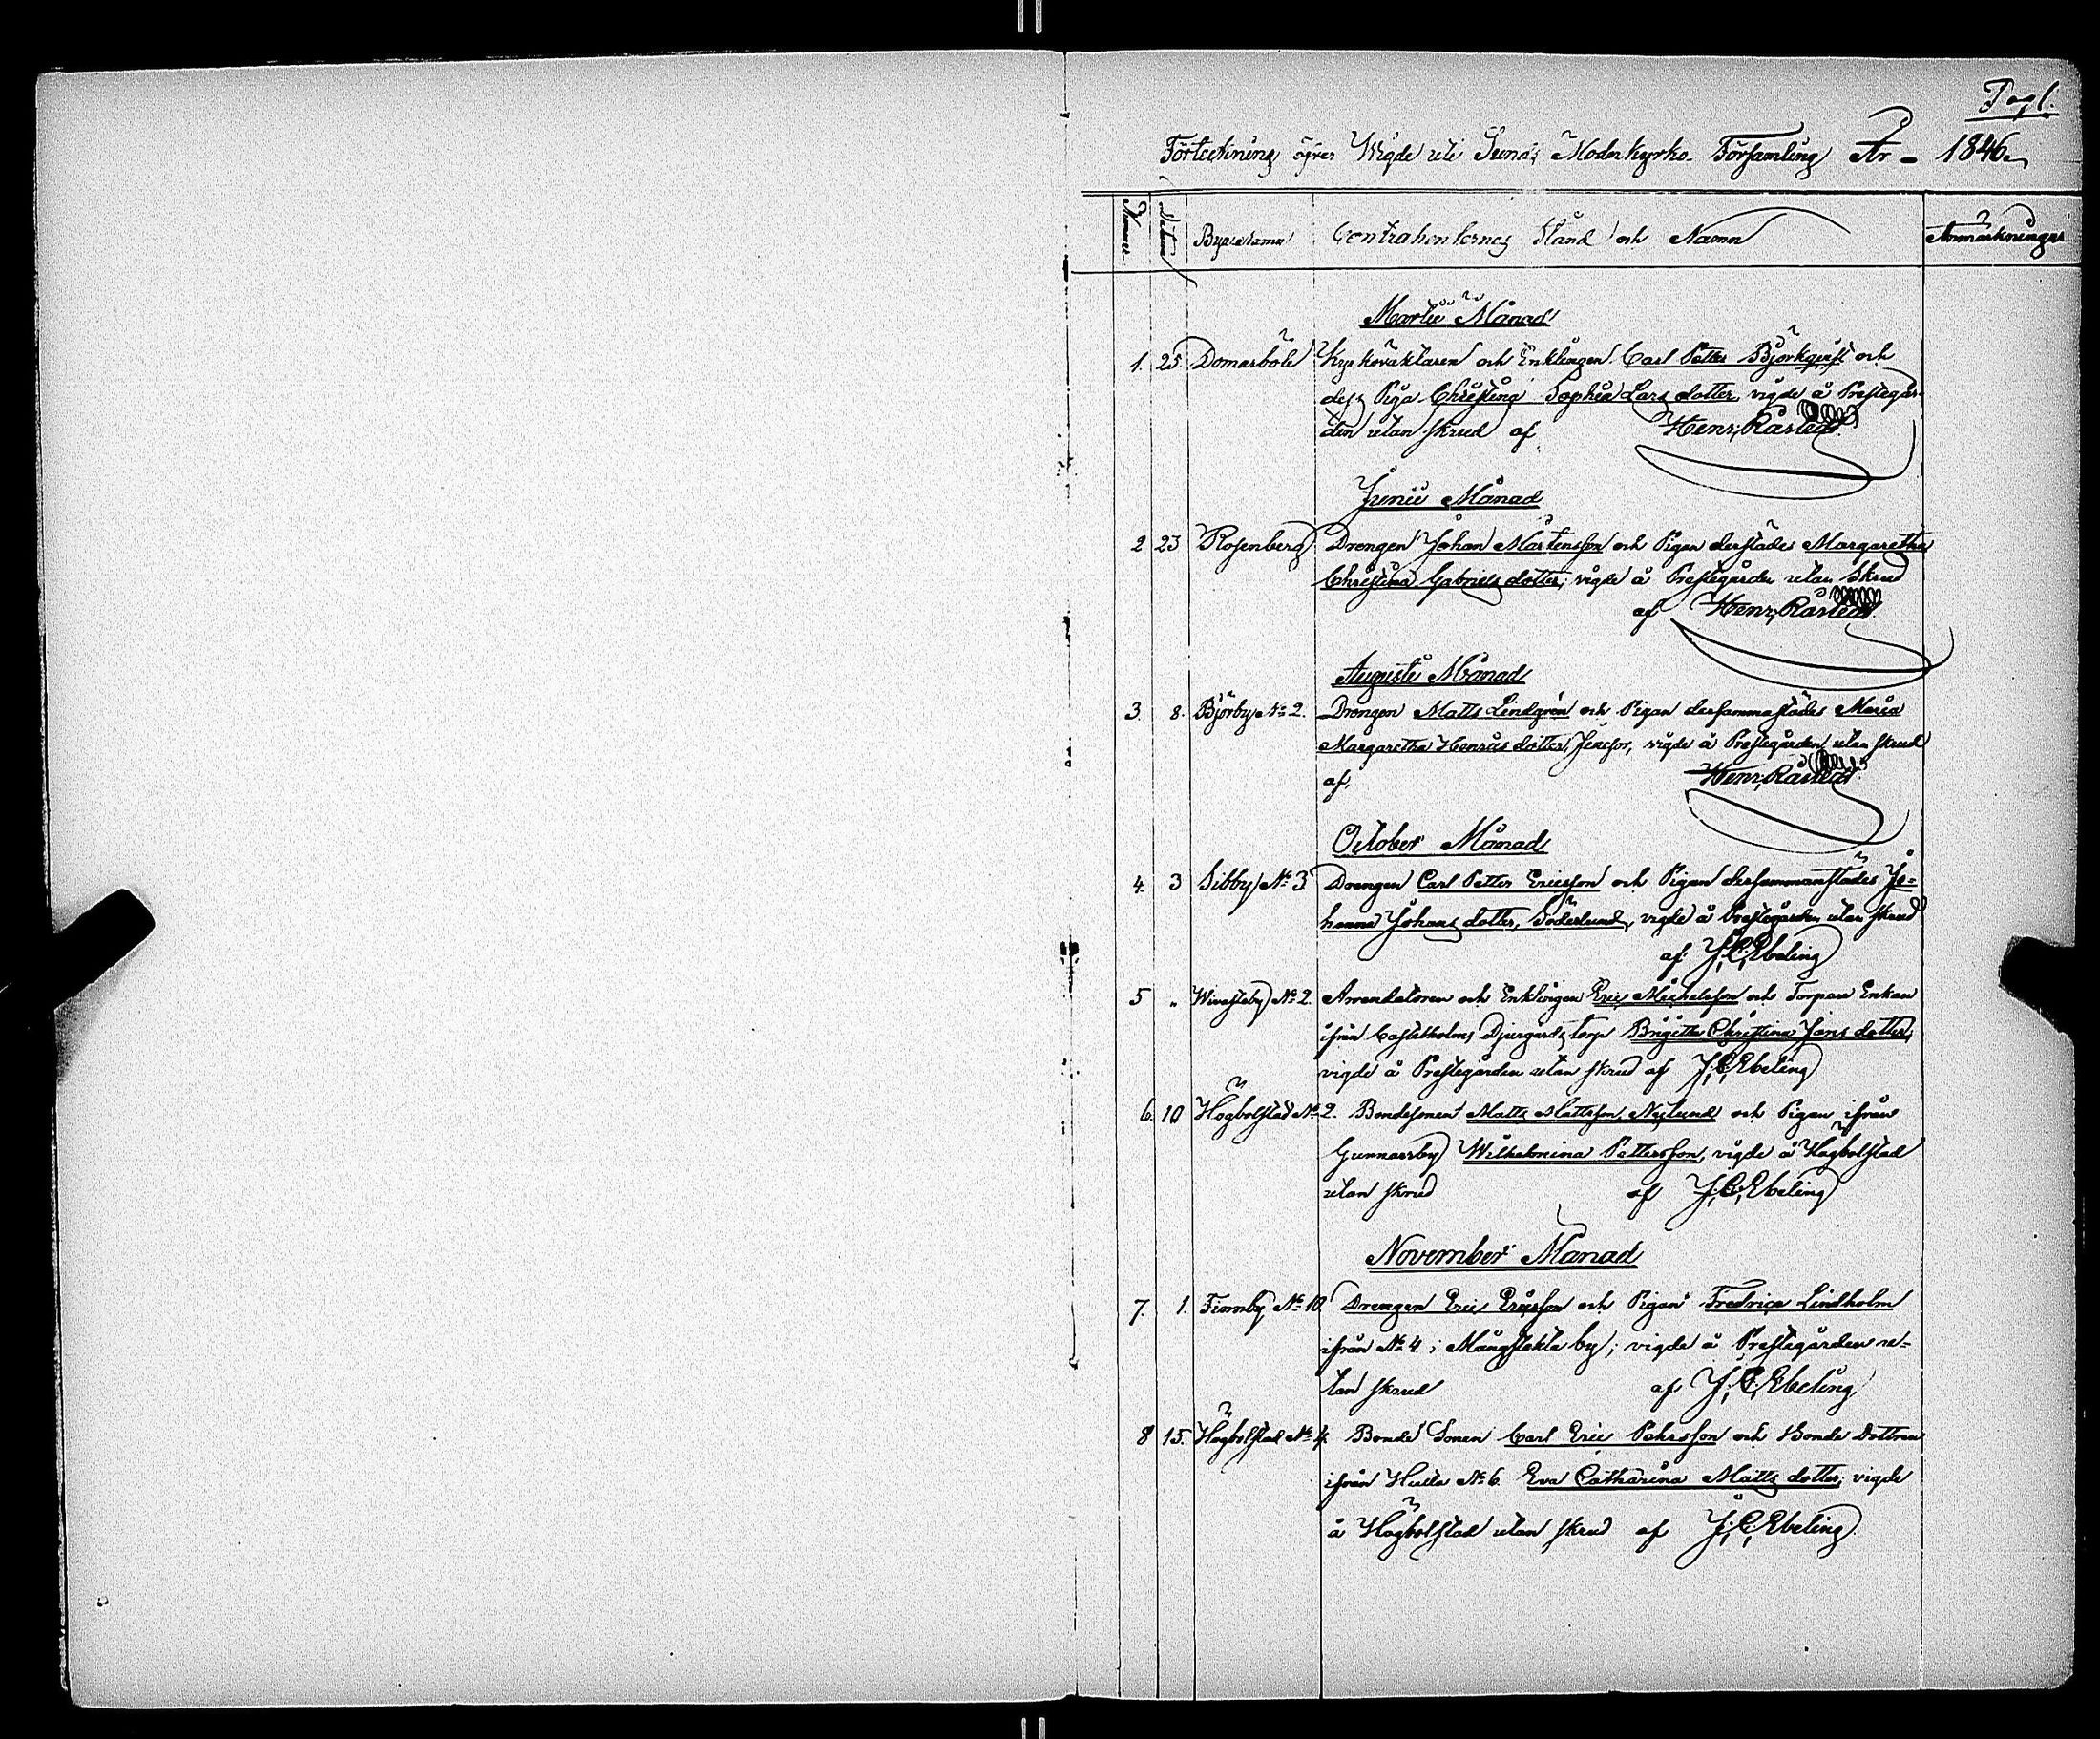 Pag 1.
Förteckning öfver Wigde uti Sunds Moderkyrko Församling År - 1846.
Nummer Datum Byarnas namn Contrahenternes Stånd och Namn Anmärkningar
Martii Månad
1. 25 Domarböle Kyrkováktaren och Enklingen Carl Petter Björkqvist och
dess Piga Christina Sophia Lars dotter vigde å Prestegår-
den utan skrud af Henr. Råstedt.
Junii Månad
2 23 Rosenberg Drengen Johan Mårtensson och Pigan derstädes Margaretha
Christina Gabriels dotter; vigde å Prestegården utan Skrud
af Henr. Råstedt.
Augusti Månad
3. 8. Björby No 2. Drengen Matts Lindgrén och Pigan dersammastädes Maria
Margaretha Henrics dotter, vigde å Prestegården utan skrud
af, Henr. Råstedt.
October Månad
4. 3 Sibby No 3 Drengen Carl Petter Ericsson och Pigan dersammanstädes Jo-
hanna Johans dotter, Söderlund, vigde å Prestegården utan skrud
af J. C. Ebeling
5 " Wivasteby No 2. Arrendatoren och Enklingen Eric Michelsson och Torpare Enkan
ifrån Castelholms Djurgårds torp Brigitta Christina Jans dotter,
vigde å Prestegården utan skrud af J. C. Ebeling
6. 10 Högbolstad No 2. Bondesonen Matts Mattsson Nylund och Pigan ifrån
Gunnarsby Wilhelmina Pettersson, vigde å Högbolstad
utan skrud af J. C. Ebeling
November Månad
7. 1. Finnby No 10 Drengen Eric Ersson och Pigan Fredrica Lindholm
ifrån No 4 i Mångstekta by; vigde å Prestegården u-
tan skrud af J. C. Ebeling
8 15. Högbolstad No 4. Bonde Sonen Carl Eric Pehrsson och Bonde Dottren
ifrån Hulta No 6. Eva Catharina Matts dotter; vigde
å Högbolstad utan skrud af J. C. Ebeling.